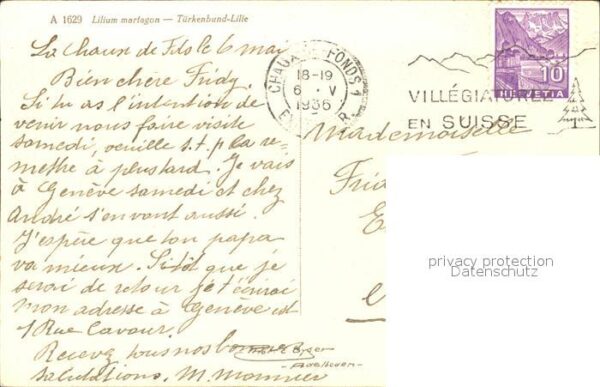 A 1629 Lilium martagon — Türkenbund-Lilie
La Chaux de Fds le 6 mai
Bien chère Fridy.
Si tu as l'intention de
venir nous faire visite
samedi, veuille s.t.p la re=
methe à plus tard. Je vais
à Genève samedi et chez
André s'en vont aussi.
J'espère que ton papa
va mieux. Sitôt que je
serai de retour je t'écrirai
mon adresse à Genève est
1 Rue Cavour.
Recevez tous nos bonnes
salutations. M. Monnier
Adelboden
CHAUX-DE-FONDS 1
18-19
6.V
1936
VILLÉGIATUREZ
EN SUISSE
10
HELVETIA
Mademoiselle
privacy protection
Datenschutz